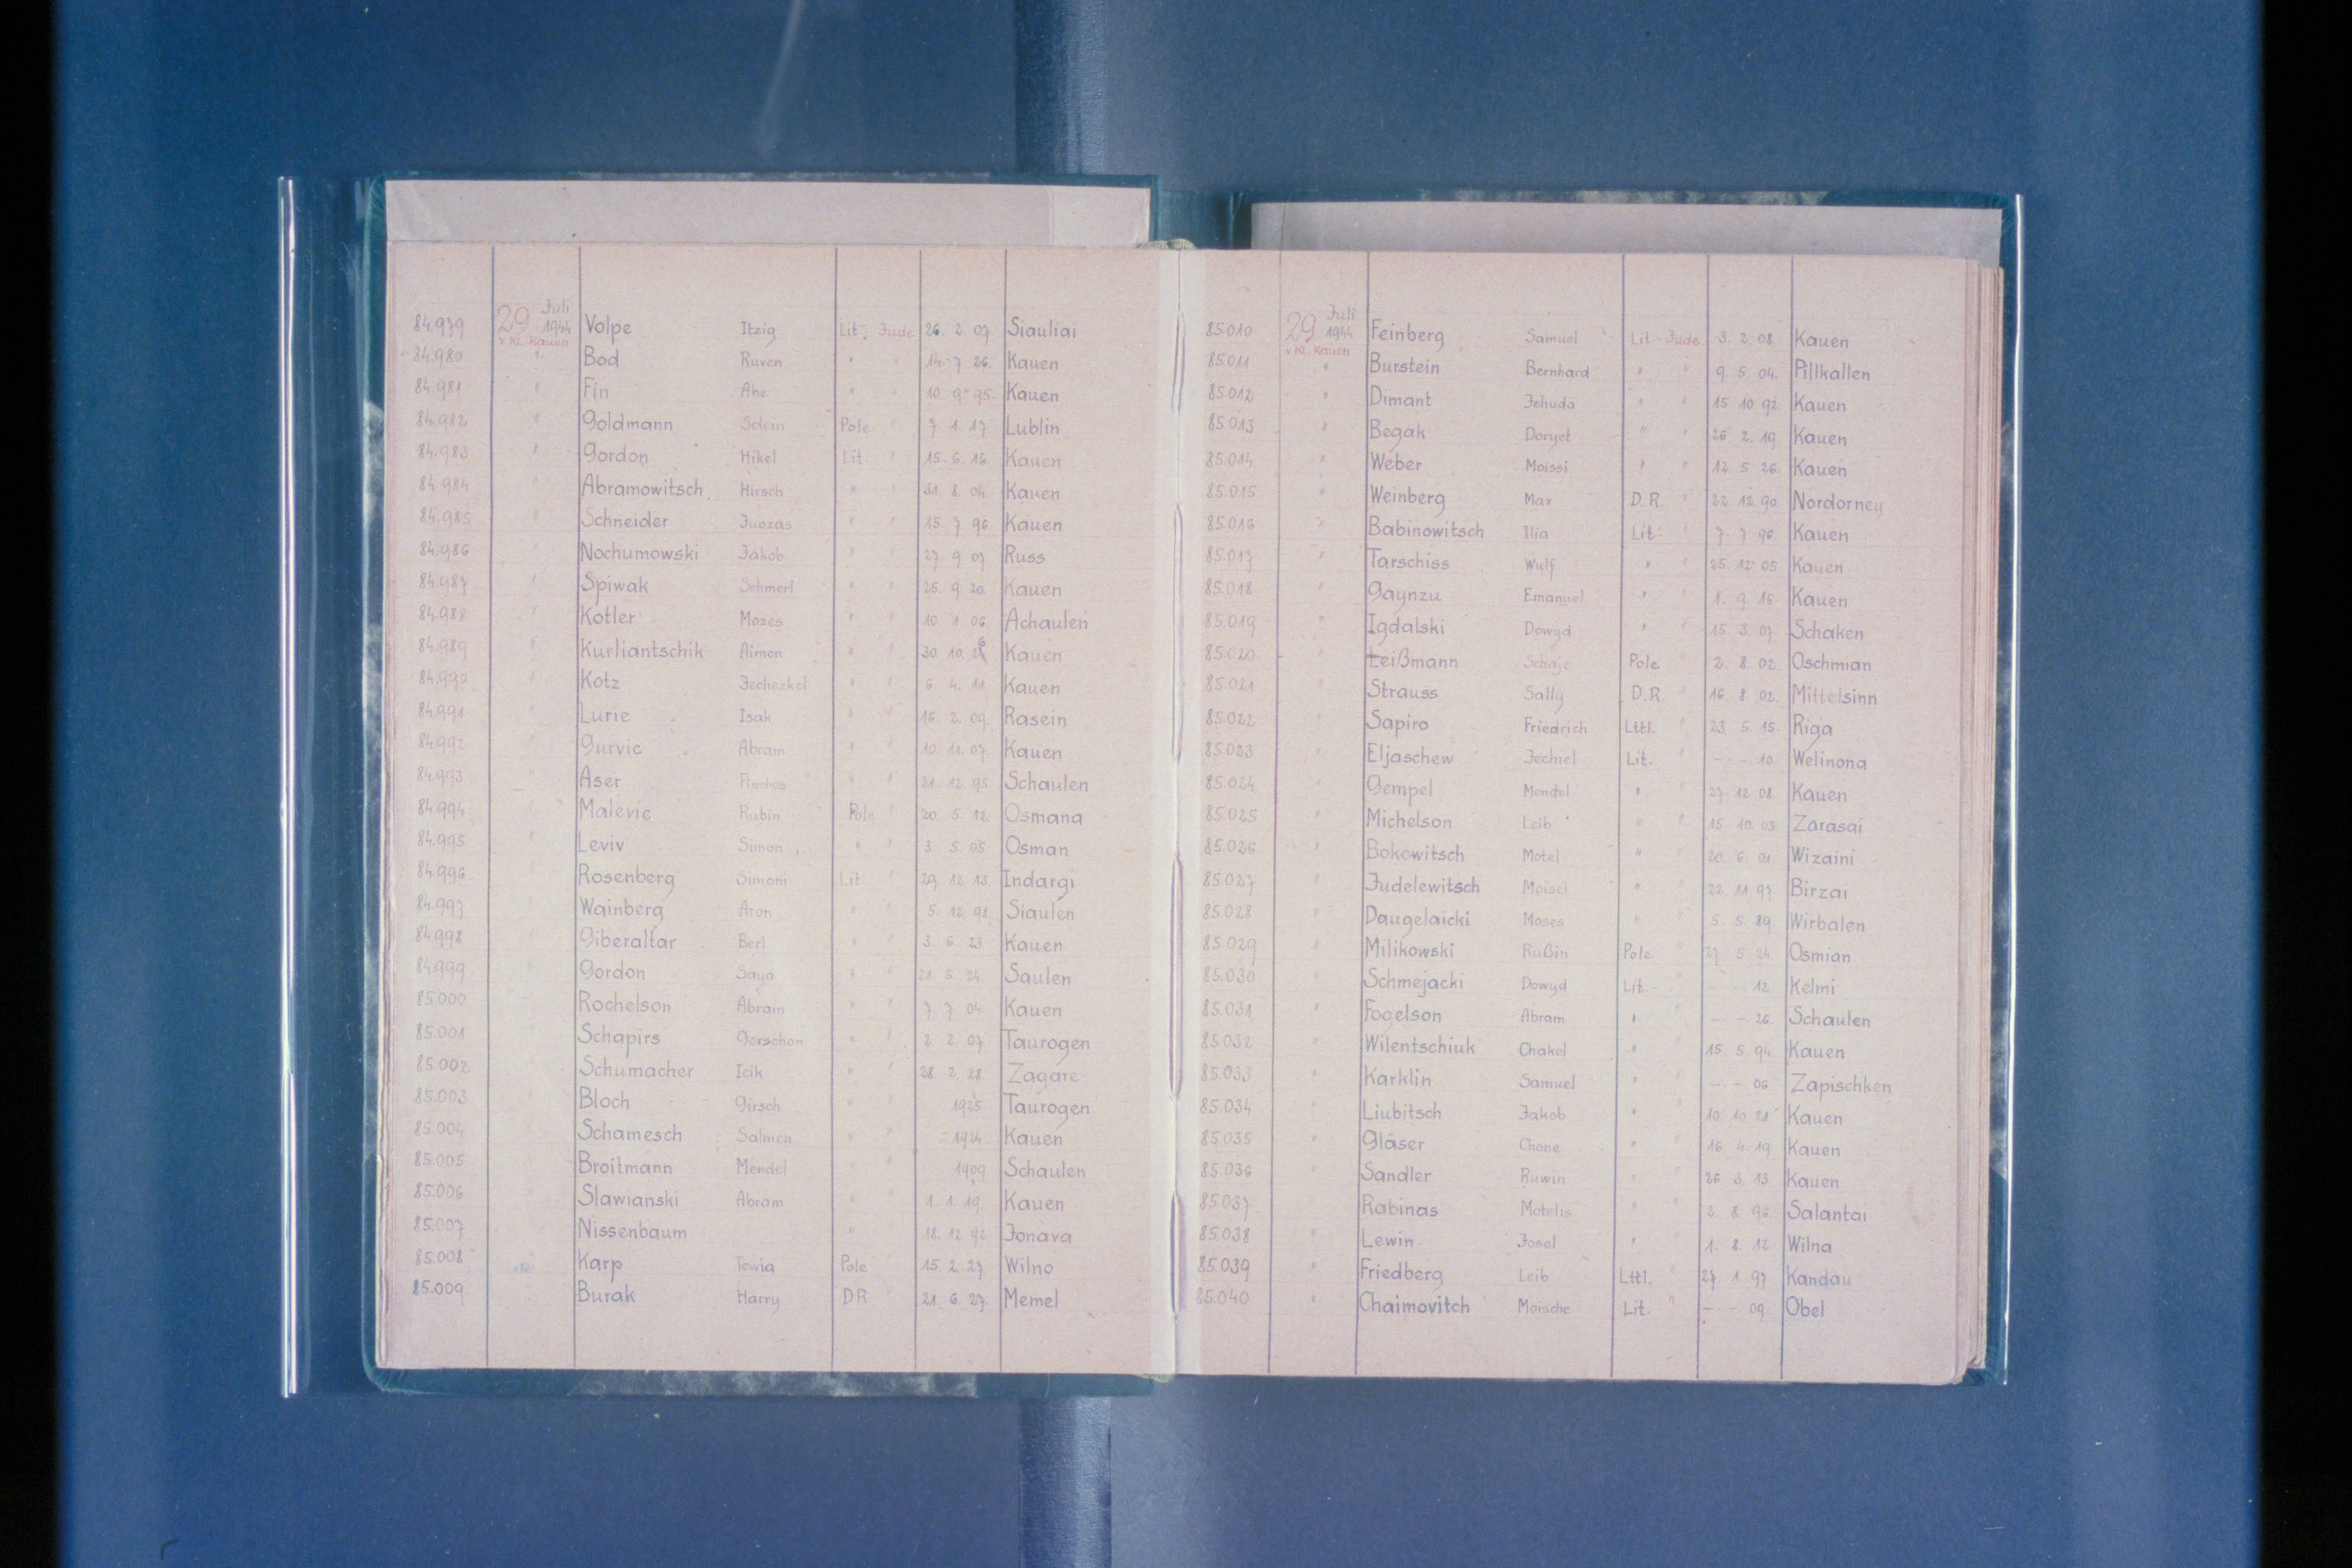 84.979 29 Juli 1944 Volpe Itzig Lit. Jude 26. 2. 07 Siauliai
v. KL. Kauen
84.980 " Bod Ruven " " 14. 7. 26. Kauen
84.981 " Fin Abe " " 10. 9. 95. Kauen
84.982 " Goldmann Pole " 7. 1. 17 Lublin
84.983 " Gordon Hikel Lit. " 15. 6. 16. Kauen
84.984 " Abramowitsch Hirsch " " 31. 8. 04. Kauen
84.985 " Schneider Juozas " " 15. 7. 96. Kauen
84.986 " Nochumowski Jakob " " 27. 9. 07 Russ
84.987 " Spiwak Schmerl " " 25. 9. 20. Kauen
84.988 " Kotler Mozes " " 10. 1. 06. Achaulen
84.989 " Kurliantschik Aimon " " 30. 10. Kauen
84.990 " Kotz Jechezkel " " 6. 4. 11 Kauen
84.991 " Lurie Isak " " 16. 2. 09. Rasein
84.992 " Gurvic Abram " " 10. 11. 07. Kauen
84.993 " Aser Pinchos " " 21. 12. 95 Schaulen
84.994 " Malevic Rubin Pole " 20. 5. 12. Osmana
84.995 " Leviv Simon " " 3. 5. 05 Osman
84.996 " Rosenberg Simoni Lit. " 29. 12. 13. Indargi
84.997 " Wainberg Aron " " 5. 12. 98 Siaulen
84.998 " Giberaltar Berl " " 3. 6. 23 Kauen
84.999 " Gordon Saya " " 21. 5. 24 Saulen
85.000 Rochelson Abram " " 7. 7. 04. Kauen
85.001 Schapirs Gerschon " " 2. 2. 07. Taurogen
85.002 Schumacher Icik " " 28. 2. 28. Zagare
85.003 Bloch Girsch " " 1925 Taurogen
85.004 Schamesch Salmen " " 1924 Kauen
85.005 Broitmann Mendel " " 1909 Schaulen
85.006 Slawianski Abram " " 1. 1. 19. Kauen
85.007 Nissenbaum " 18. 12. 92 Jonava
85.008 Karp Tewia Pole " 15. 2. 27 Wilno
85.009 Burak Harry DR. " 21. 6. 27. Memel
85.010 29 Juli 1944 Feinberg Samuel Lit. Jude 3. 2. 08 Kauen
v. KL. Kauen
85.011 " Burstein Bernhard " " 9. 5. 04. Pillkallen
85.012 " Dimant Jehuda " " 15. 10. 92. Kauen
85.013 " Begak Doryet " " 26. 2. 19 Kauen
85.014 " Weber Moissi " " 12. 5. 26. Kauen
85.015 " Weinberg Max D.R. " 22. 12. 90. Nordorney
85.016 " Babinowitsch Ilia Lit. " 7. 7. 96. Kauen
85.017 " Tarschiss Wulf " " 25. 12. 05 Kauen
85.018 " Gaynzu Emanuel " " 1. 9. 16. Kauen
85.019 " Igdalski Dowyd " " 15. 3. 07. Schaken
85.020 " Leißmann Schaje Pole " 2. 8. 02. Oschmian
85.021 " Strauss Sally D.R. " 16. 8. 02. Mittelsinn
85.022 " Sapiro Friedrich Lttl. " 23. 5. 15. Riga
85.023 " Eljaschew Jechiel Lit. " - - 10. Welinona
85.024 " Gempel Mendel " " 27. 12. 08. Kauen
85.025 " Michelson Leib " " 15. 10. 03. Zarasai
85.026 " Bokowitsch Motel " " 20. 6. 01. Wizaini
85.027 " Judelewitsch Moisei " " 22. 11. 97. Birzai
85.028 " Daugelaicki Moses " " 5. 5. 89 Wirbalen
85.029 " Milikowski Rußin Pole " 27. 5. 24 Osmian
85.030 " Schmejacki Dowyd Lit. " - - 12. Kelmi
85.031 " Fogelson Abram " " - - 26. Schaulen
85.032 " Wilentschiuk Chakel " " 15. 5. 94. Kauen
85.033 " Karklin Samuel " " - - 06 Zapischken
85.034 " Liubitsch Jakob " " 10. 10. 21 Kauen
85.035 " Gläser Chone " " 16. 4. 19 Kauen
85.036 " Sandler Ruwin " " 26. 3. 13 Kauen
85.037 " Rabinas Motelis " " 2. 8. 96. Salantai
85.038 " Lewin Josel " " 1. 8. 12 Wilna
85.039 " Friedberg Leib Lttl. " 27. 1. 97 Kandau
85.040 " Chaimovitch Moische Lit. " - - 09. Obel